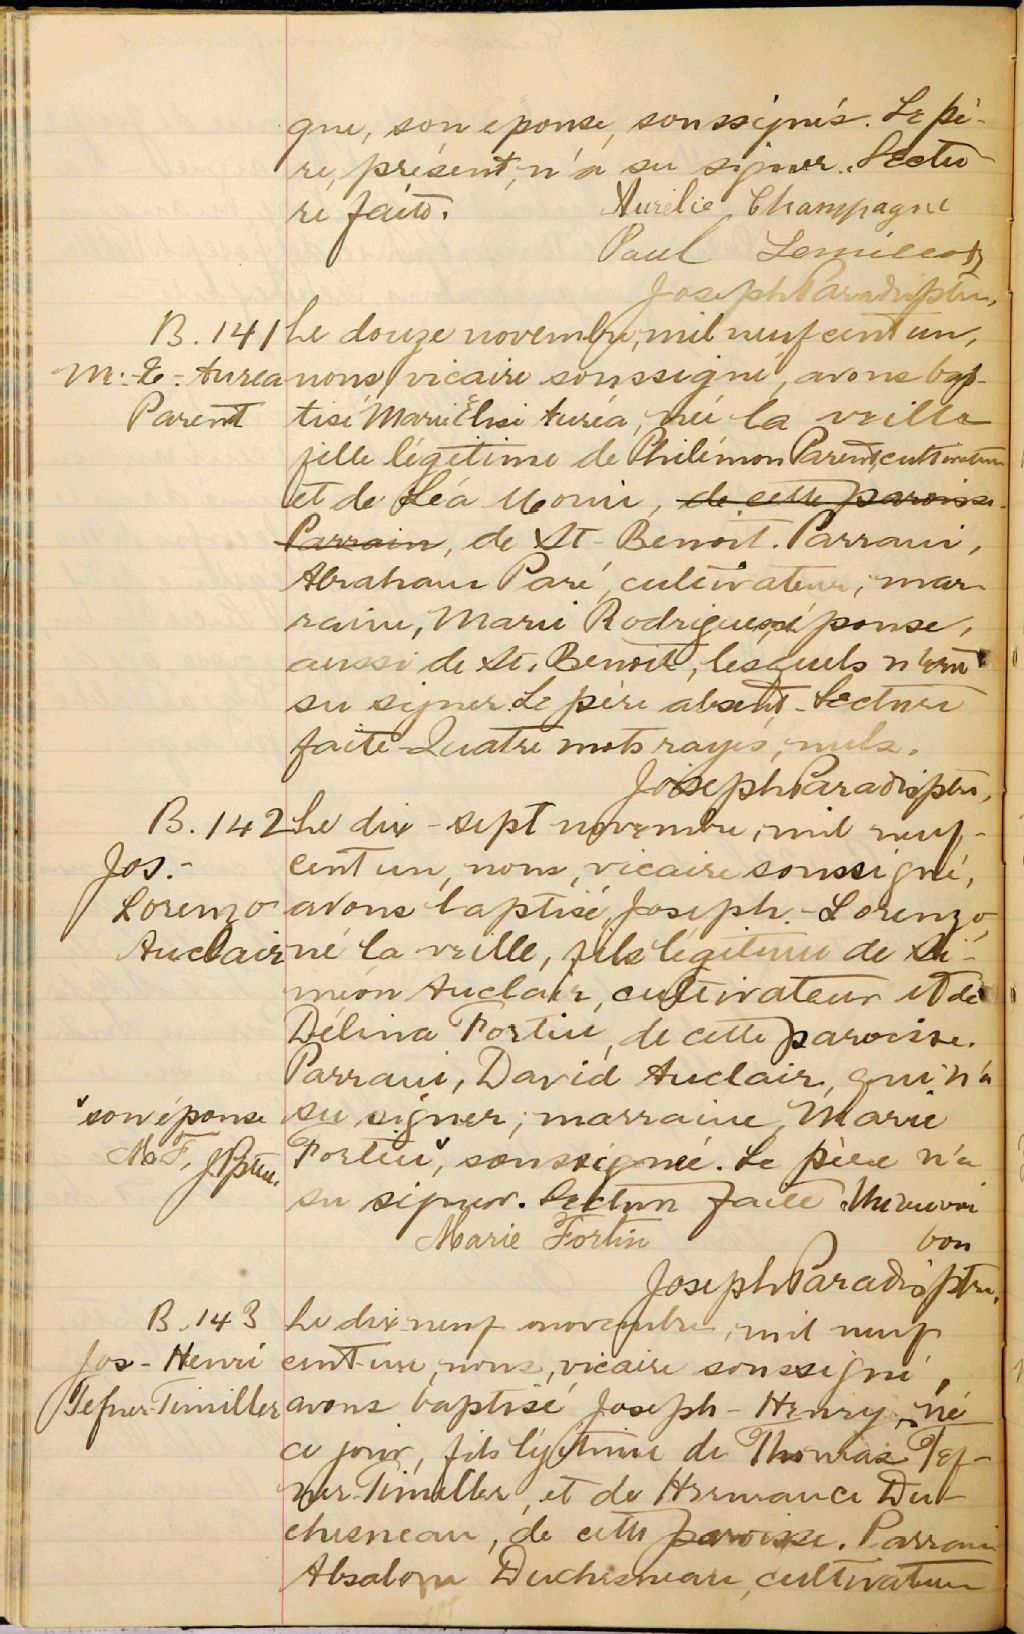 que, son épouse, soussignés. Le pè-
re, présent, n'a su signer. Lectu
re faite. Aurélie Champagne
Paul
Joseph Paradis ptre,
B. 141 Le douze novembre, mil neuf cent un,
M.-E.-Auréa nous, vicaire soussigné, avons bap-
Parent tisé Marie Elise Auréa, née la veille
fille légitime de Philémon Parent, cultivateur
et de Léa, de cette paroisse.
Parrain, de St-Benoit. Parrain,
Abraham Paré, cultivateur; mar
raine, Marie Rodrigue, son épouse,
aussi de St. Benoit, lesquels n'ont
su signer. Le père absent. Lecture
faite. Quatre mots rayés, nuls.
Joseph Paradis ptre,
B. 142 Le dix-sept novembre, mil neuf-
Jos.- cent un, nous, vicaire soussigné,
Lorenzo avons baptisé, Joseph-Lorenzo,
Auclair né la veille, fils légitime de Si-
méon Auclair, cultivateur et de
Délina Fortin, de cette paroisse.
Parrain, David Auclair, qui n'a
son épouse su signer; marraine, Marie
M.F. J.P. ptre. Fortin, soussignée. Le père n'a
su signer. Lecture faite. Un renvoi
Marie Fortin bon
Joseph Paradis ptre.
B. 143 Le dix-neuf novembre, mil neuf
Jos-Henri cent un, nous, vicaire soussigné,
Tefner-Timiller avons baptisé Joseph-Henry, né
ce jour, fils légitime de Thomas Tef-
ner-Timiller, et de Hermance Du-
chesneau, de cette paroisse. Parrain
Absalom Duchesneau, cultivateur